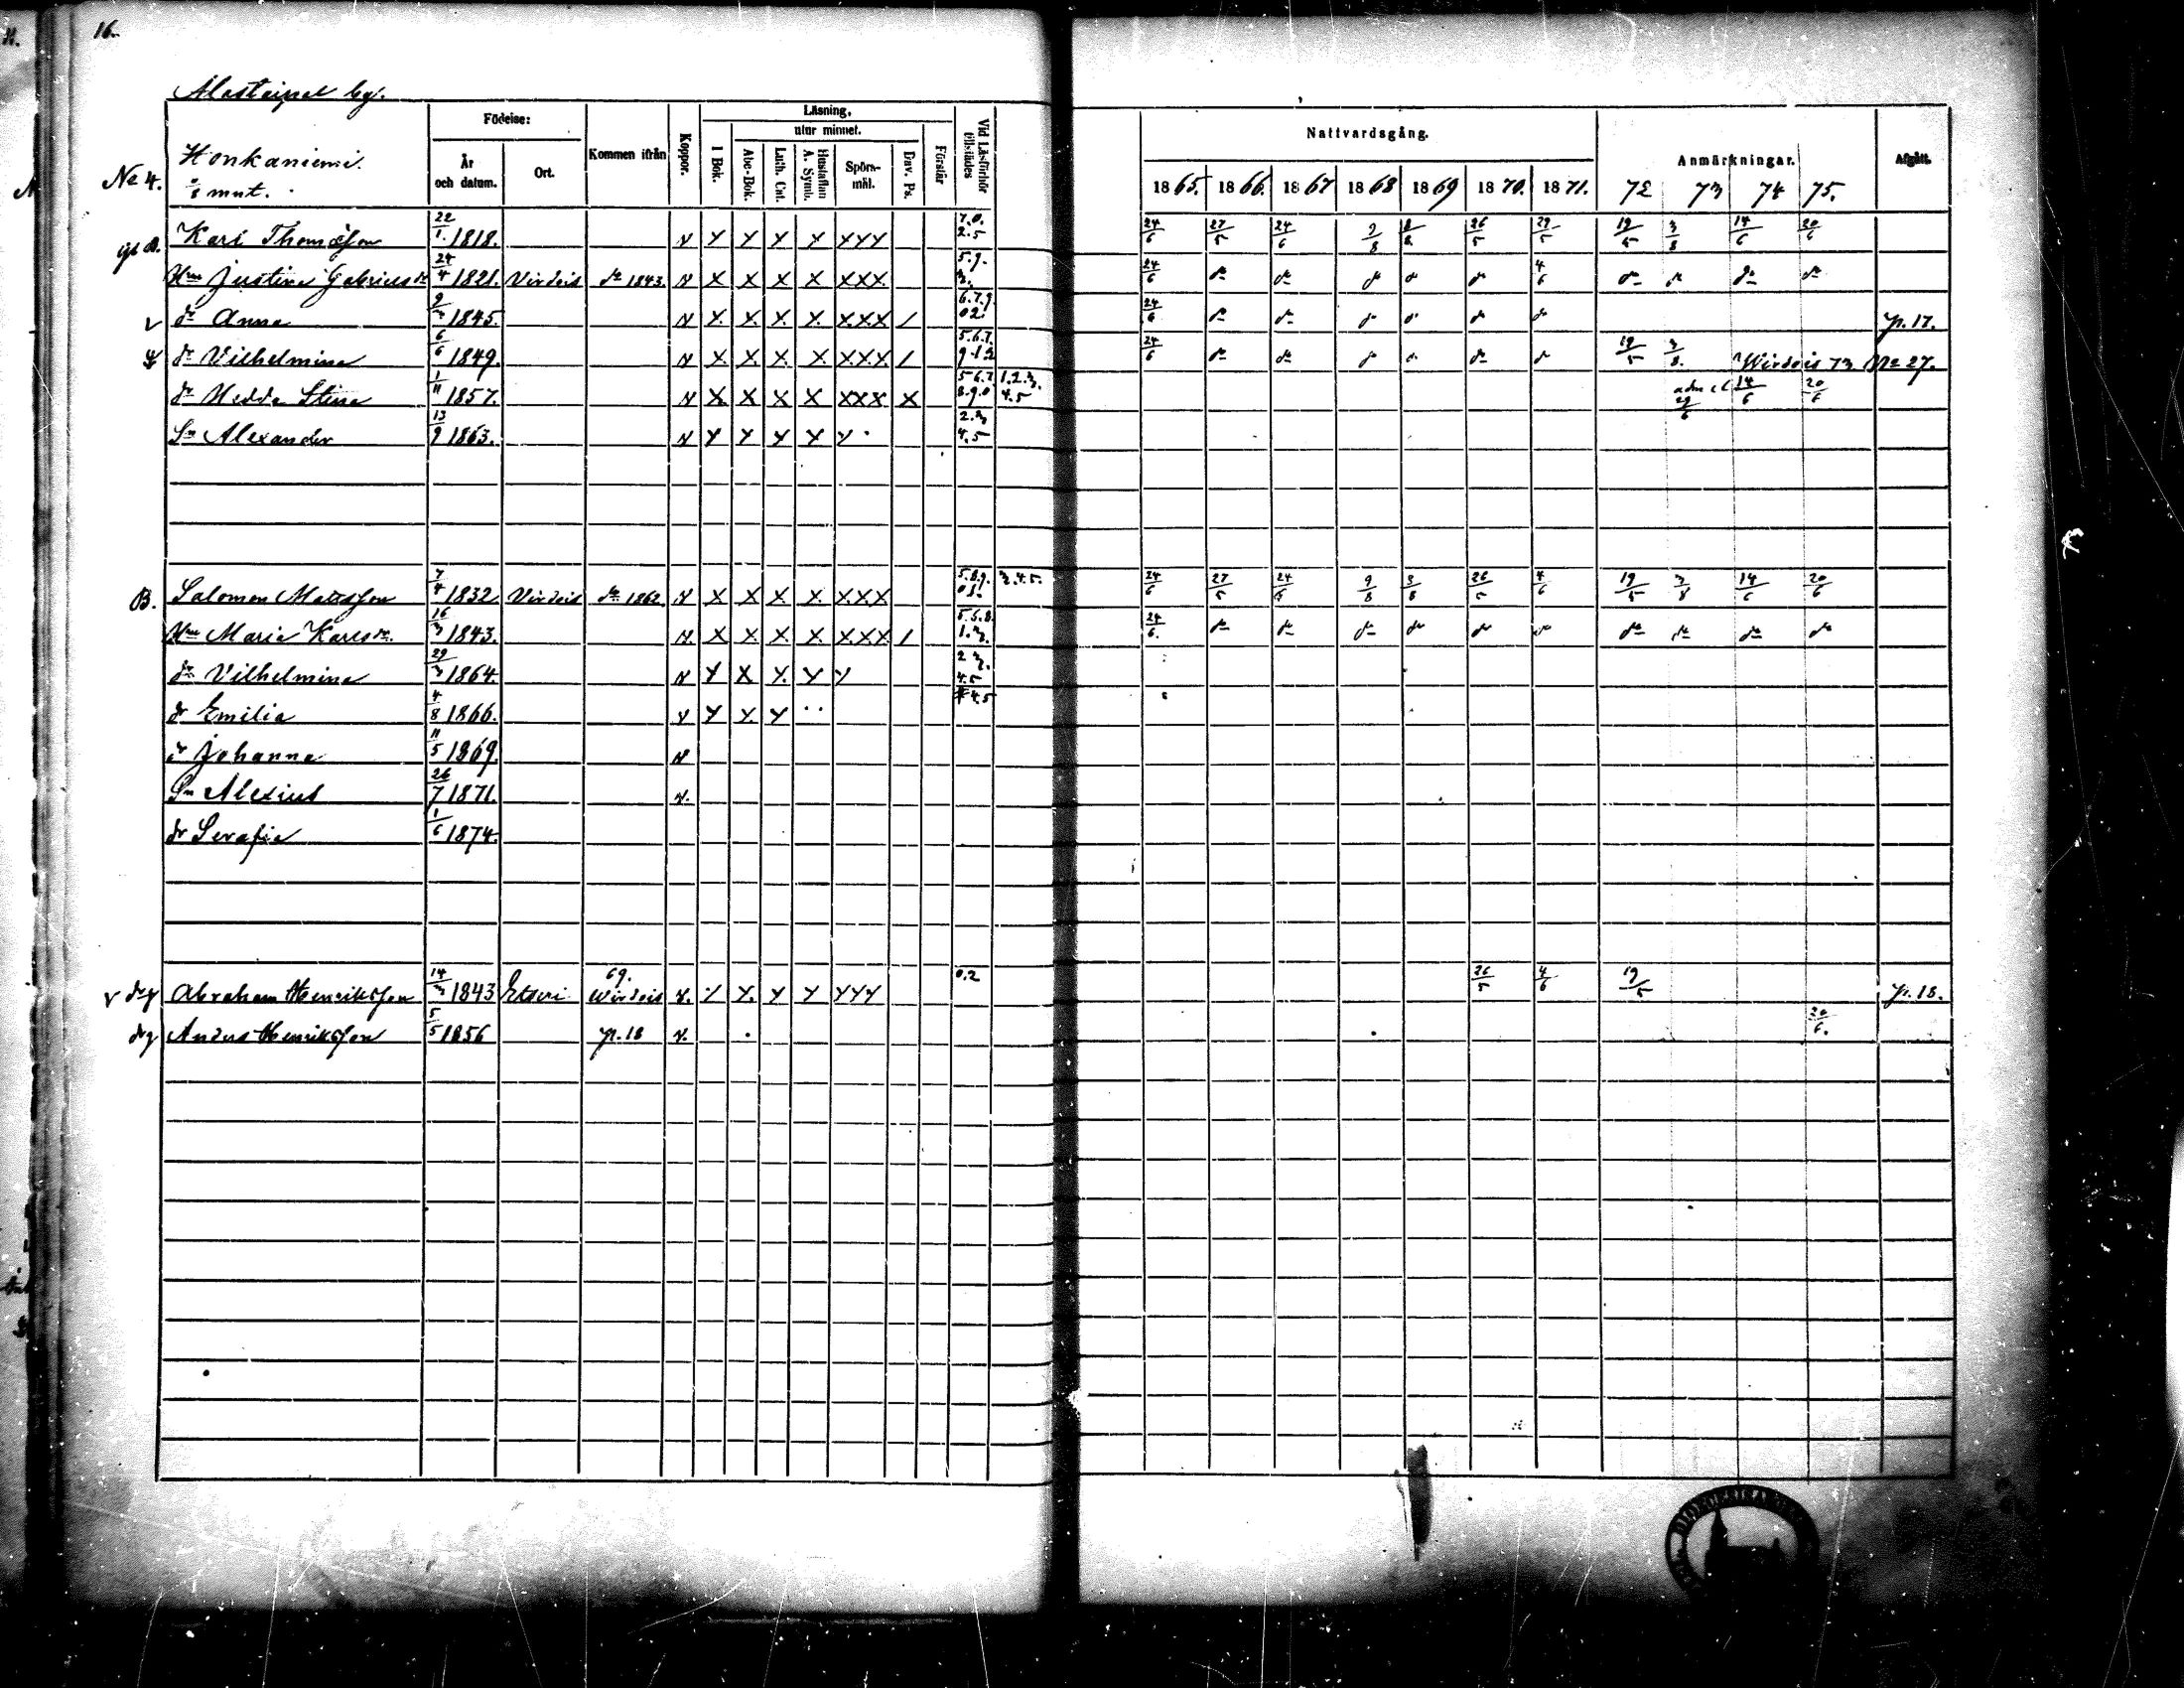 16.
by.
Honkaniemi.
No 4.
mnt.
Födelse:
År och datum.
Ort.
Kommen ifrån
Koppor.
Läsning.
I Bok.
utur minnet.
Abc-Bok.
Luth. Cat.
Hustaflan A. Symb.
Spörs-mål.
Dav. Ps.
Förstår
Vid Läsförhör tillstädes
Nattvardsgång.
Anmärkningar.
Afgått.
1865. 1866. 1867 1868 1869 1870. 1871. 72 73 74 75.
B. Karl Thomasson 22/1 1818. v Y Y X X XYY 7.0. 2.5 24/6 27/5 24/6 9/8 8/8 26/5 29/5 19/5 3/8 14/6 20/6
Hu Justina Gabrielsdr 24/4 1821. Virdois do 1843. v X X X X XXX. 5.9. 3. 24/6 do do do do do 4/6 do do do do
v dr Anna 9/3 1845. v X. X. X. X. X.X.X / 6.7.9. 02. 24/6 do do do do do do p. 17.
dr Vilhelmina 6/6 1849. v X. X. X. X. X.X.X. / 5.6.7. 9.1.2 24/6 do do do do do do 19/5 3/8. Wirdois 73 No 27.
dr Hedda Stina 1/11 1857. v X. X X X XXX X 5.6.7. 8.9.0 1.2.3. 4.5 29/6 14/6 20/6
Sn Alexander 13/9 1863. v Y Y Y Y Y 2.3 4.5
B. Salomon Matsson 7/4 1832 Virdois do 1862. v X X X. X. X.X.X 5.8.9. 3.4.5. 24/6 27/5 24/6 9/8 8/8 26/5 4/6 19/5 3/8 14/6 20/6
Hu Maria Karlsdr. 16/3 1843. v. X X X. X. X.X.X / 5.6.8. 1.3. 24/6. do do do do do do do do do do
dr Vilhelmina 29/3 1864. v Y X Y. Y Y 2 3. 4.5
dr Emilia 4/8 1866. v Y Y. Y 4.5
dr Johanna 11/5 1869. v
Sn Alexius 26/7 1871. v.
dr Serafia 1/6 1874.
v drg Abraham Henriksson 14/3 1843 Etseri 69. Wirdois v. Y Y. Y Y YYY 0.2 26/5 4/6 19/5 p. 18.
drg Anders Henriksson 5/5 1856 p. 18 v. 20/6.